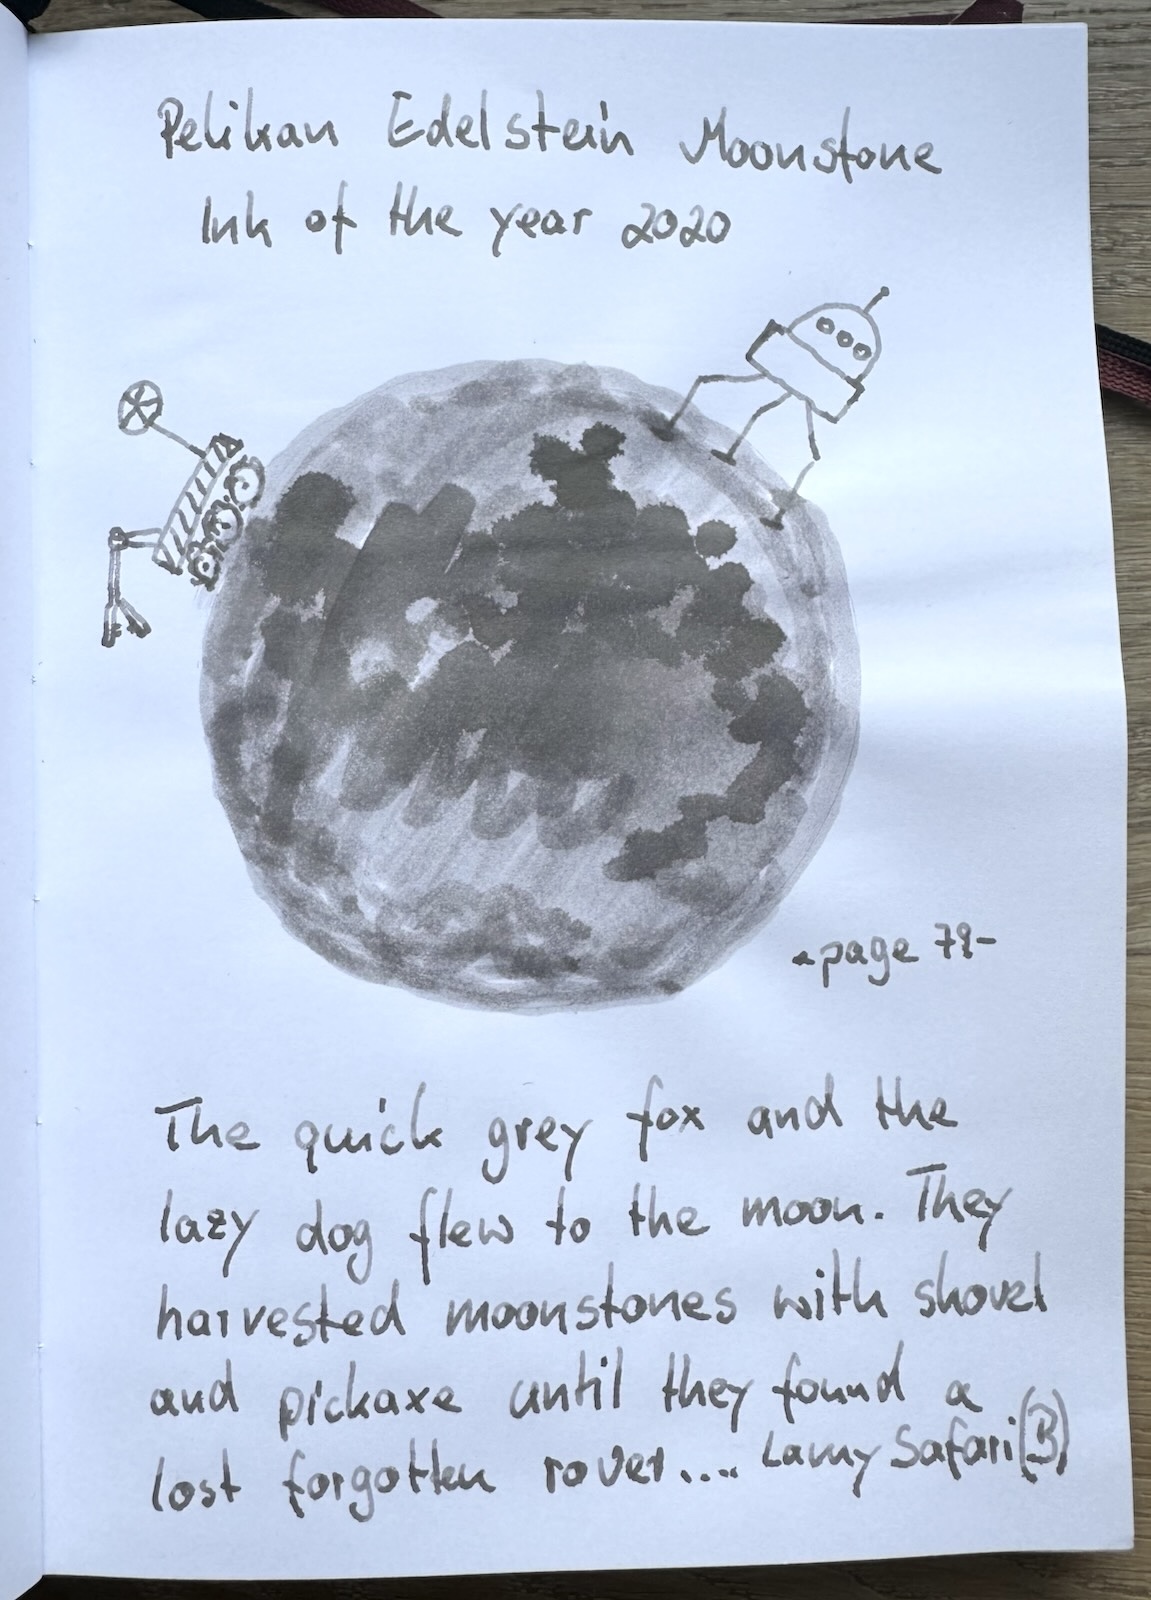 Pelikan Edelstein Moonstone
Ink of the year 2020
-page 79-
The quick grey fox and the
lazy dog flew to the moon. They
harvested moonstones with shovel
and pickaxe until they found a
lost forgotten rover.... Lamy Safari (B)